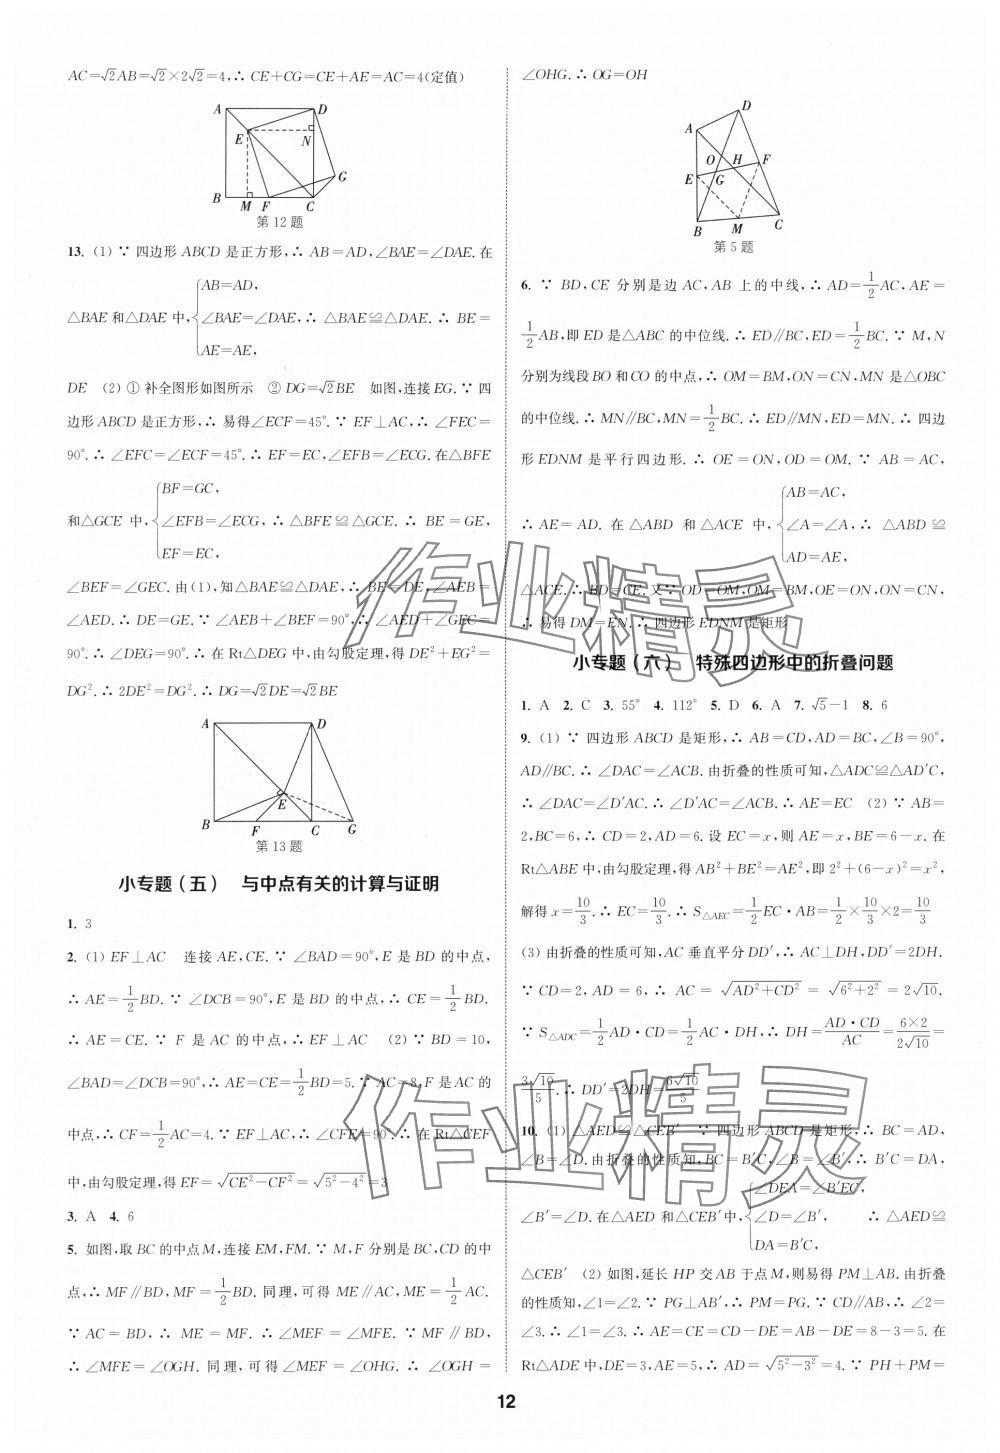 AC=√2AB=√2×2√2=4,∴ CE+CG=CE+AE=AC=4(定值)
A D
E N
G
B M F C
第12题
13. (1) ∵ 四边形 ABCD 是正方形,∴ AB=AD,∠BAE=∠DAE. 在
AB=AD,
△BAE 和△DAE 中, ∠BAE=∠DAE,∴ △BAE≌△DAE. ∴ BE=
AE=AE,
DE (2) ① 补全图形如图所示 ② DG=√2BE 如图,连接EG. ∵ 四
边形 ABCD 是正方形,∴ 易得∠ECF=45°. ∵ EF⊥AC,∴ ∠FEC=
90°. ∴ ∠EFC=∠ECF=45°. ∴ EF=EC,∠EFB=∠ECG. 在△BFE
BF=GC,
和△GCE 中, ∠EFB=∠ECG, ∴ △BFE≌△GCE. ∴ BE=GE,
EF=EC,
∠BEF=∠GEC. 由(1),知△BAE≌△DAE,∴ BE=DE,∠AEB=
∠AED. ∴ DE=GE. ∵ ∠AEB+∠BEF=90°,∴ ∠AED+∠GEC=
90°. ∴ ∠DEG=90°. ∴ 在 Rt△DEG 中,由勾股定理,得 DE²+EG²=
DG². ∴ 2DE²=DG². ∴ DG=√2DE=√2BE
A D
E
B F C G
第13题
小专题(五) 与中点有关的计算与证明
1. 3
2. (1) EF⊥AC 连接 AE,CE. ∵ ∠BAD=90°,E 是 BD 的中点,
∴ AE=1/2BD. ∵ ∠DCB=90°,E 是 BD 的中点,∴ CE=1/2BD.
∴ AE=CE. ∵ F 是 AC 的中点,∴ EF⊥AC (2) ∵ BD=10,
∠BAD=∠DCB=90°,∴ AE=CE=1/2BD=5. ∵ AC=8,F 是 AC 的
中点,∴ CF=1/2AC=4. ∵ EF⊥AC,∴ ∠CFE=90°. ∴ 在 Rt△CEF
中,由勾股定理,得 EF=√(CE²−CF²)=√(5²−4²)=3
3. A 4. 6
5. 如图,取 BC 的中点 M,连接 EM,FM. ∵ M,F 分别是 BC,CD 的中
点,∴ MF∥BD,MF=1/2BD. 同理,可得 ME∥AC,ME=1/2AC.
∵ AC=BD,∴ ME=MF. ∴ ∠MEF=∠MFE. ∵ MF∥BD,
∴ ∠MFE=∠OGH. 同理,可得∠MEF=∠OHG. ∴ ∠OGH=
∠OHG. ∴ OG=OH
D
A
O H F
E G
B M C
第5题
6. ∵ BD,CE 分别是边 AC,AB 上的中线,∴ AD=1/2AC,AE=
1/2AB,即 ED 是△ABC 的中位线. ∴ ED∥BC,ED=1/2BC. ∵ M,N
分别为线段 BO 和 CO 的中点,∴ OM=BM,ON=CN,MN 是△OBC
的中位线. ∴ MN∥BC,MN=1/2BC. ∴ ED∥MN,ED=MN. ∴ 四边
形 EDNM 是平行四边形. ∴ OE=ON,OD=OM. ∵ AB=AC,
AB=AC,
∴ AE=AD. 在△ABD 和△ACE 中, ∠A=∠A,∴ △ABD≌
AD=AE,
△ACE. ∴ BD=CE. 又∵ OD=OM,OM=BM,OE=ON,ON=CN,
∴ 易得 DM=EN. ∴ 四边形 EDNM 是矩形
小专题(六) 特殊四边形中的折叠问题
1. A 2. C 3. 55° 4. 112° 5. D 6. A 7. √5−1 8. 6
9. (1) ∵ 四边形 ABCD 是矩形,∴ AB=CD,AD=BC,∠B=90°,
AD∥BC. ∴ ∠DAC=∠ACB. 由折叠的性质可知,△ADC≌△AD′C,
∴ ∠DAC=∠D′AC. ∴ ∠D′AC=∠ACB. ∴ AE=EC (2) ∵ AB=
2,BC=6,∴ CD=2,AD=6. 设 EC=x,则 AE=x,BE=6−x. 在
Rt△ABE 中,由勾股定理,得 AB²+BE²=AE²,即 2²+(6−x)²=x²,
解得 x=10/3. ∴ EC=10/3. ∴ S△AEC=1/2EC·AB=1/2×10/3×2=10/3
(3) 由折叠的性质可知,AC 垂直平分 DD′,∴ AC⊥DH,DD′=2DH.
∵ CD=2,AD=6,∴ AC=√(AD²+CD²)=√(6²+2²)=2√10.
∵ S△ADC=1/2AD·CD=1/2AC·DH,∴ DH=AD·CD/AC=6×2/2√10=
3√10/5. ∴ DD′=2DH=6√10/5
10. (1) △AED≌△CEB′ ∵ 四边形 ABCD 是矩形,∴ BC=AD,
∠B=∠D. 由折叠的性质知,BC=B′C,∠B=∠B′,∴ B′C=DA,
∠DEA=∠B′EC,
∠B′=∠D. 在△AED 和△CEB′中, ∠D=∠B′, ∴ △AED≌
DA=B′C,
△CEB′ (2) 如图,延长 HP 交 AB 于点 M,则易得 PM⊥AB. 由折叠
的性质知,∠1=∠2. ∵ PG⊥AB′,∴ PM=PG. ∵ CD∥AB,∴ ∠2=
∠3. ∴ ∠1=∠3. ∴ AE=CE=CD−DE=AB−DE=8−3=5. 在
Rt△ADE 中,DE=3,AE=5,∴ AD=√(5²−3²)=4. ∵ PH+PM=
12
作业精灵
作业精灵